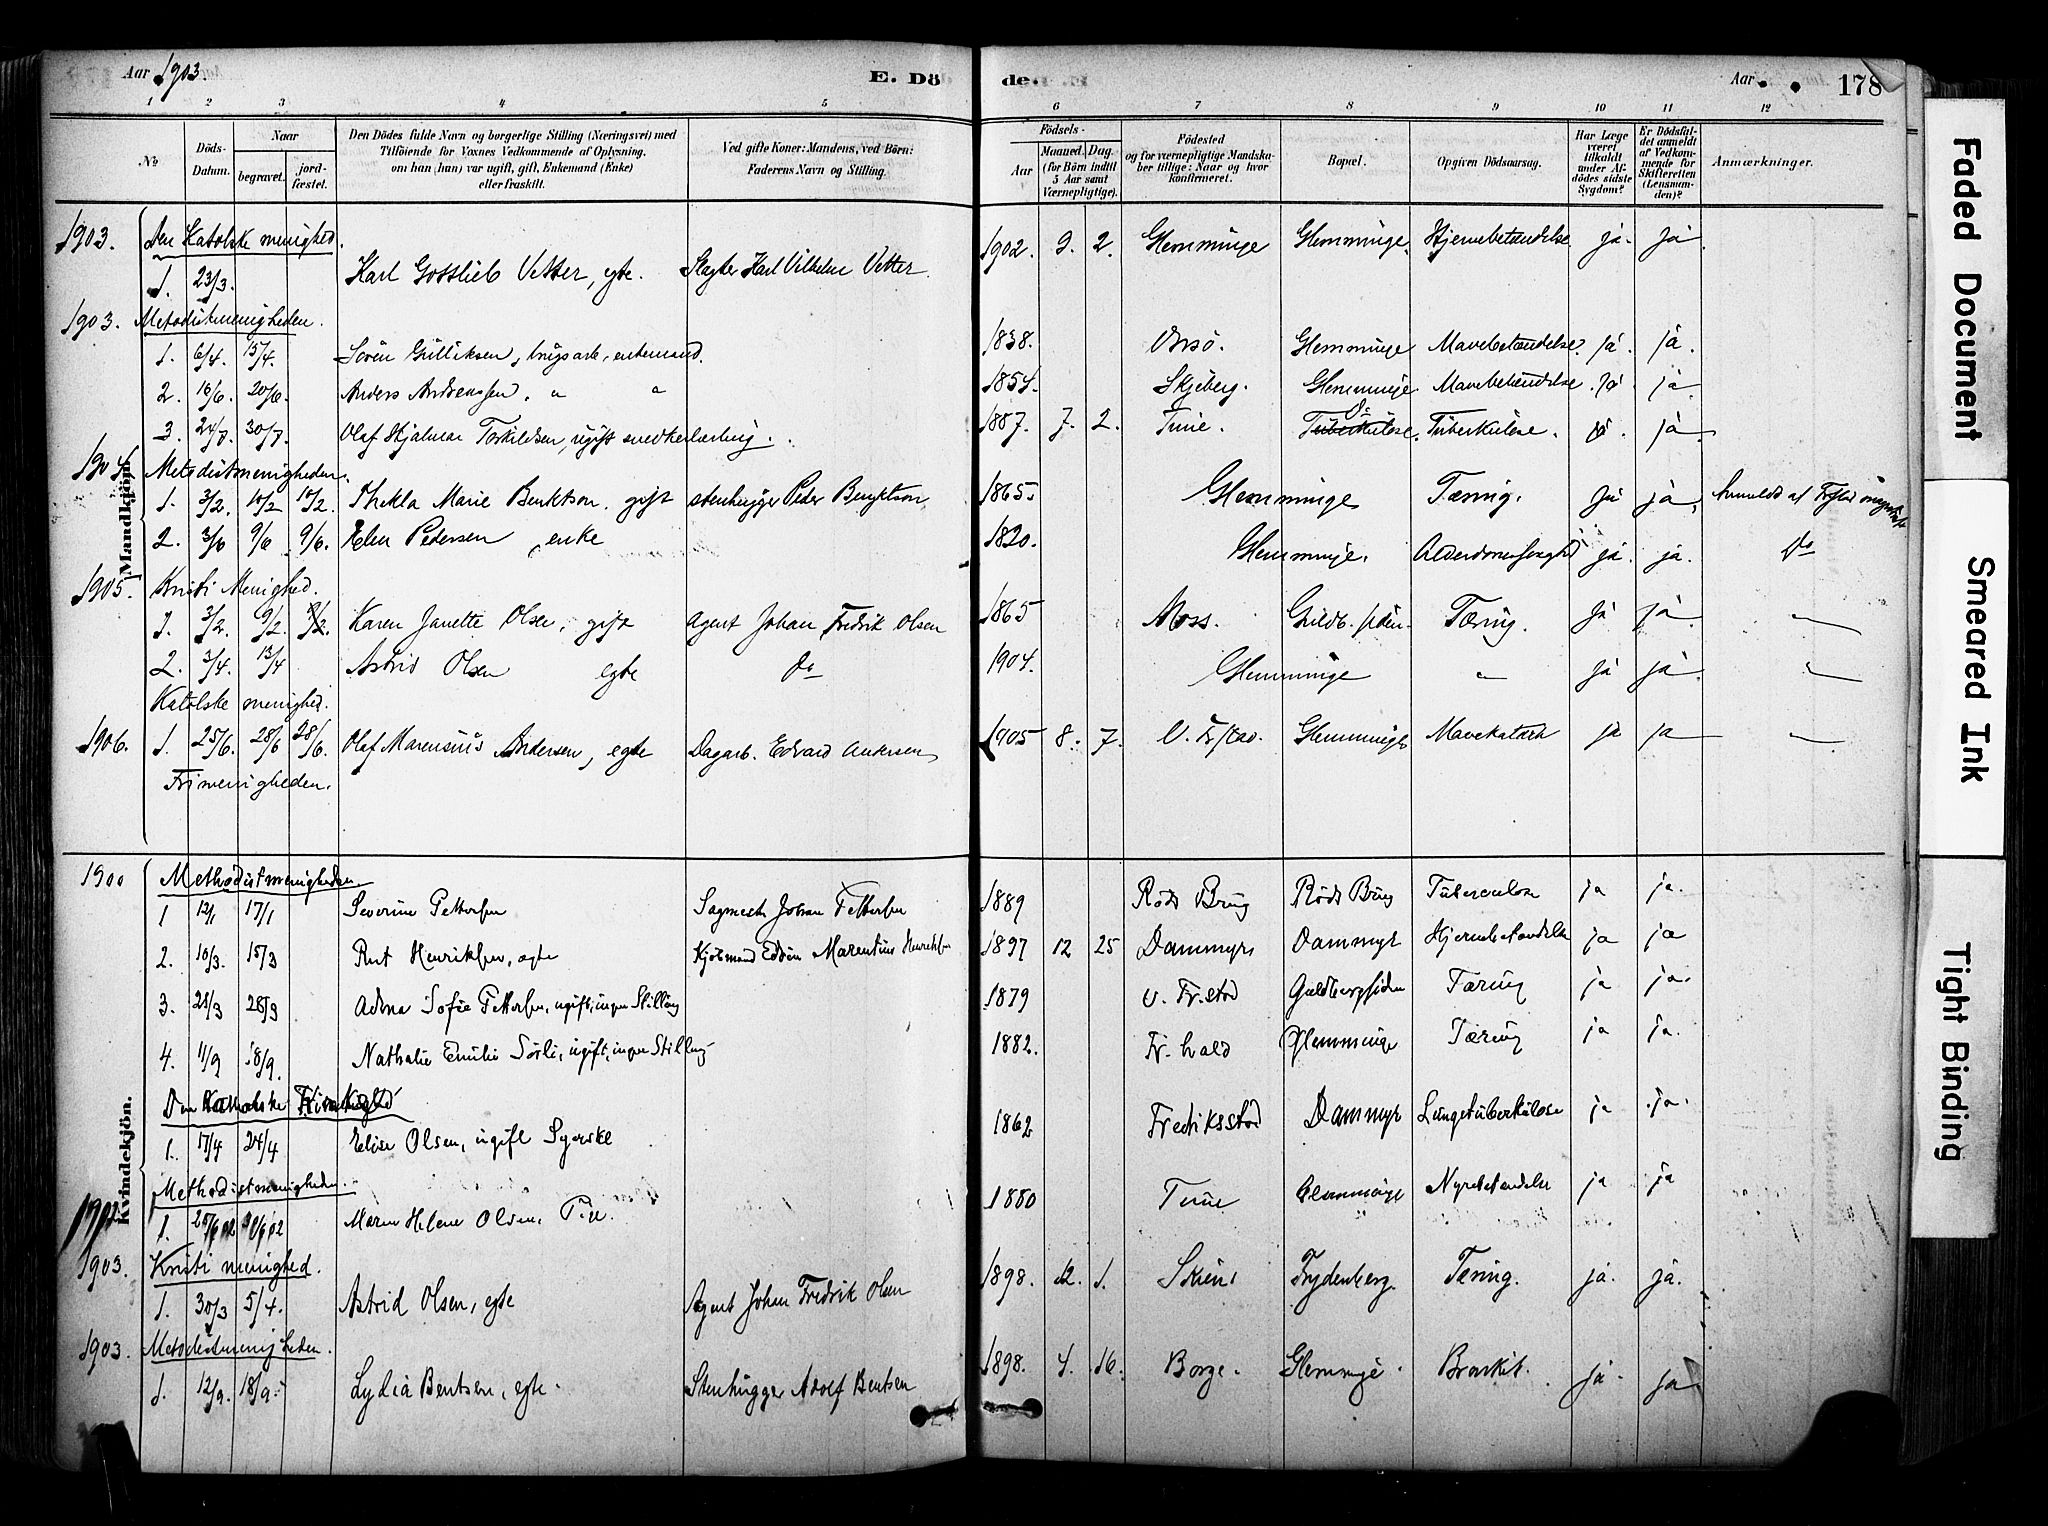 Aar 1903. E. Döde. Aar 178
1 2 3 4 5 6 7 8 9 10 11 12
No Döds-Datum. Naar begravet. jordfæstet. Den Dödes fulde Navn og borgerlige Stilling (Næringsvei) med Tilföiende for Voxnes Vedkommende af Oplysning, om han (hun) var ugift, gift, Enkemand (Enke) eller fraskilt. Ved gifte Koner: Mandens, ved Börn: Faderens Navn og Stilling. Födsels- Aar Maaned. Dag. (for Börn indtil 5 Aar samt Værnepligtige). Födested og for værnepligtige Mandskaber tillige: Naar og hvor konfirmeret. Bopæl. Opgiven Dödsaarsag. Har Læge været tilkaldt under Afdödes sidste Sygdom? Er Dödsfaldet anmeldt af Vedkommende for Skifteretten (Lensmanden)? Anmærkninger.
Mandkjön.
1903. Den Katolske menighed.
1. 23/3. Karl Gottlieb Vetter, egte. Slagter Karl Vilhelm Vetter 1902. 9. 2. Glemminge Glemminge. Hjernebetændelse ja. ja
1903. Metodistmenigheden.
1. 6/4. 15/4. Sören Gulliksen, brugsarb. enkemand. 1838. Onsö. Glemminge Mavebetændelse. ja. ja.
2. 16/6. 20/6. Anders Andreassen, " " 1854. Skjeberg. Glemminge Mavebetændelse. ja ja
3. 24/7. 30/7. Olaf Hjalmar Torkildsen, ugift snedkerlærling. 1887. 7. 2. Tune. Do Tuberkulose. Tuberkulose. ja. ja
1904. Metodistmenigheden.
1. 3/2. 10/2 10/2. Thekla Marie Bentsson, gift stenhugger Peder Bengtson 1865. Glemminge Tæring. ja ja. Anmeldt af
2. 3/6 9/6 9/6. Elen Pedersen, enke 1820. Glemminge. ja ja. Do
1905. Kristi Menighed.
1. 3/2. 9/2. 9/2. Karen Janette Olsen, gift Agent Johan Fredrik Olsen 1865 Moss. Guldb. siden Tæring. ja ja. "
2. 3/4. 13/4 Astrid Olsen egte Do 1904. Glemminge " ja ja. "
Katolske menighed.
1906. 1. 25/6. 28/6 28/6. Olaf Marensius Andersen, egte Dagarb. Edvard Andersen 1905 8. 7. V. Fr.stad. Glemminge Mavekatarh ja ja "
Frimenigheden.
Kvindekjön.
1900 Methodistmenigheden
1 12/1 17/1 Severine Pettersen Sagmester Johan Pettersen 1889 Röds Brug Röds Brug Tuberculose ja ja.
2. 10/3. 15/3 Rut Henriksen, egte Kjöbmand Eddin Marentius Henriksen 1897 12 25 Dammyr Dammyr Hjernebetændelse ja ja
3. 25/3 28/3 Adena Sofie Pettersen, ugift, ingen Stilling 1879 V. Fr.stad Guldbergsiden Tæring ja ja.
4. 11/9 18/9. Nathalie Emilie Sörli, ugift, ingen Stilling 1882. Fr. hald Glemminge Tæring ja ja.
Den Katholske Frimenighed
1. 17/4 24/4 Elise Olsen, ugift Syerske 1862 Fredriksstad Dammyr Lungetuberkulose ja ja.
Methodistmenigheden.
1902 1. Maren Helene Olsen, Pige. 1880 Tune Glemminge Nyrebetændelse ja ja
1903. Kristi menighed.
1. 30/3 5/4. Astrid Olsen, egte Agent Johan Fredrik Olsen 1898. 12. 1. Skien Frydenberg. Tæring. ja. ja.
1903. Metodistmenigheden.
1. 12/9. 18/9. Lydia Bentsen, egte. Stenhugger Adolf Bentsen 1898. 4. 16. Borge. Glemminge. Bronkit. ja. ja
Faded Document
Smeared Ink
Tight Binding